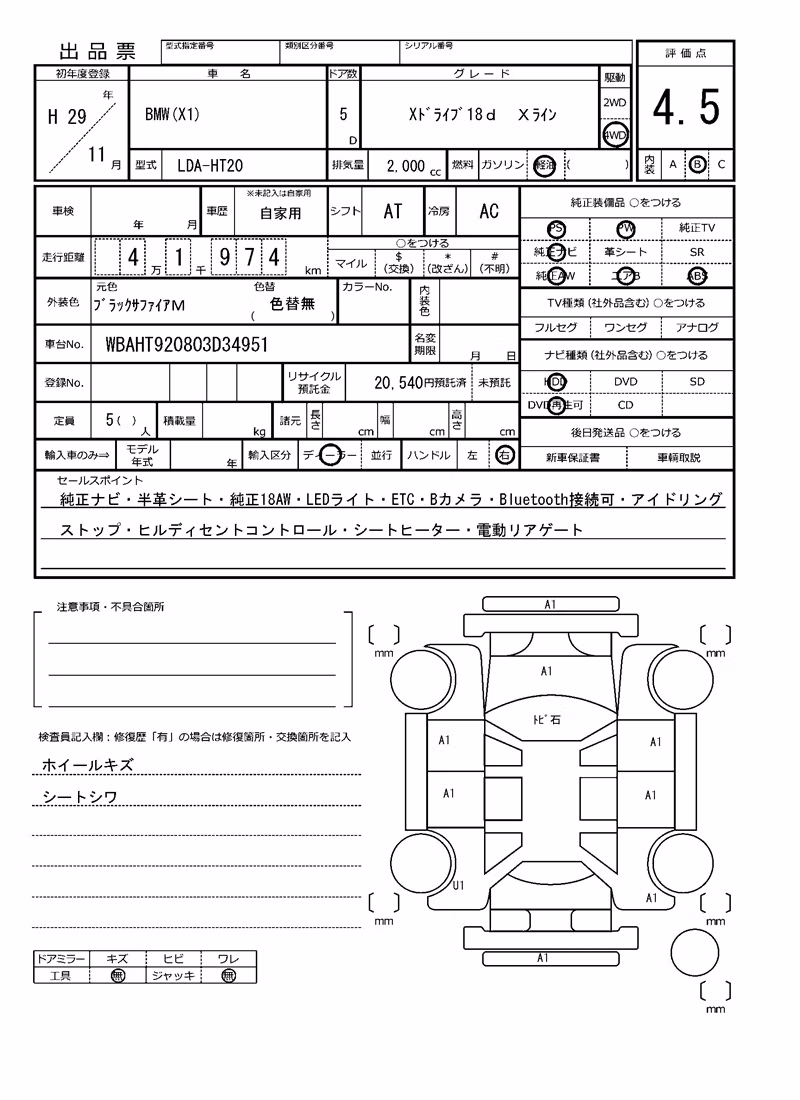 出品票
型式指定番号 類別区分番号 シリアル番号
評価点
4.5
内装 A B C
初年度登録 車名 ドア数 グレード 駆動
H 29 年 11 月
BMW(X1) 5 D Xﾄﾞﾗｲﾌﾞ18d Xﾗｲﾝ
2WD
4WD
型式 LDA-HT20 排気量 2,000 cc 燃料 ガソリン 軽油 ( )
車検 年 月 車歴 ※未記入は自家用 自家用 シフト AT 冷房 AC
走行距離 4万 1千 974 km
○をつける
マイル $(交換) *(改ざん) #(不明)
外装色 元色 ﾌﾞﾗｯｸｻﾌｧｲｱM 色替 ( 色替無 ) カラーNo. 内装色
車台No. WBAHT920803D34951 名変期限 月 日
登録No. リサイクル預託金 20,540円預託済 未預託
定員 5( )人 積載量 kg 諸元 長さ cm 幅 cm 高さ cm
輸入車のみ⇒ モデル年式 年 輸入区分 ディーラー 並行 ハンドル 左 右
純正装備品 ○をつける
PS PW 純正TV
純正ナビ 革シート SR
純正AW エアB ABS
TV種類(社外品含む)○をつける
フルセグ ワンセグ アナログ
ナビ種類(社外品含む)○をつける
HDD DVD SD
DVD再生可 CD
後日発送品 ○をつける
新車保証書 車輌取説
セールスポイント
純正ナビ・半革シート・純正18AW・LEDライト・ETC・Bカメラ・Bluetooth接続可・アイドリング
ストップ・ヒルディセントコントロール・シートヒーター・電動リアゲート
注意事項・不具合箇所
検査員記入欄：修復歴「有」の場合は修復箇所・交換箇所を記入
ホイールキズ
シートシワ
ドアミラー キズ ヒビ ワレ
工具 無 ジャッキ 無
A1
mm
mm
A1
ﾄﾋﾞ石
A1
A1
A1
A1
U1
A1
mm
mm
A1
mm